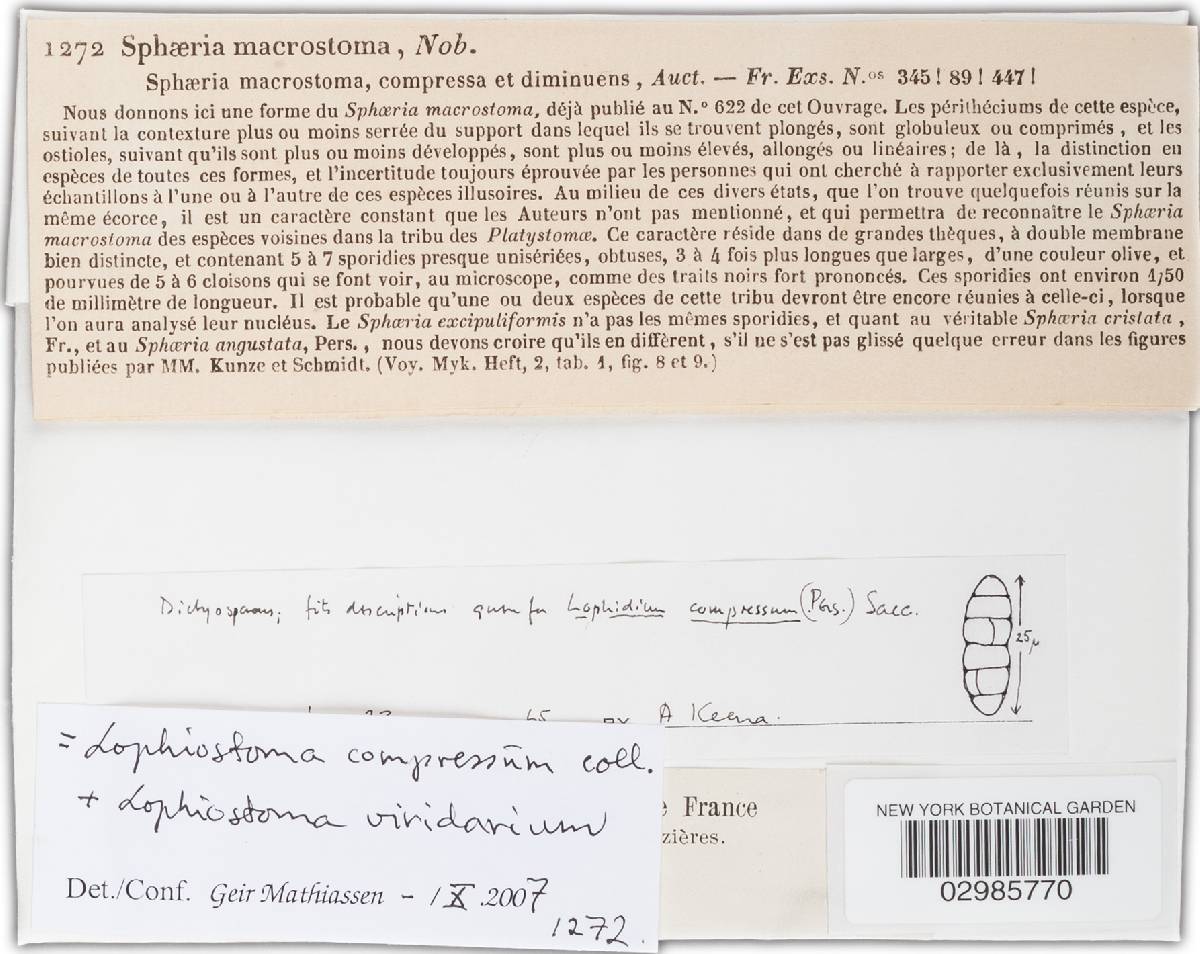 1272 Sphæria macrostoma, Nob.
Sphæria macrostoma, compressa et diminuens, Auct. — Fr. Exs. N.os 345! 89! 447!
Nous donnons ici une forme du Sphæria macrostoma, déjà publié au N.° 622 de cet Ouvrage. Les périthéciums de cette espèce,
suivant la contexture plus ou moins serrée du support dans lequel ils se trouvent plongés, sont globuleux ou comprimés, et les
ostioles, suivant qu'ils sont plus ou moins développés, sont plus ou moins élevés, allongés ou linéaires; de là, la distinction en
espèces de toutes ces formes, et l'incertitude toujours éprouvée par les personnes qui ont cherché à rapporter exclusivement leurs
échantillons à l'une ou à l'autre de ces espèces illusoires. Au milieu de ces divers états, que l'on trouve quelquefois réunis sur la
même écorce, il est un caractère constant que les Auteurs n'ont pas mentionné, et qui permettra de reconnaître le Sphæria
macrostoma des espèces voisines dans la tribu des Platystomæ. Ce caractère réside dans de grandes thèques, à double membrane
bien distincte, et contenant 5 à 7 sporidies presque unisériées, obtuses, 3 à 4 fois plus longues que larges, d'une couleur olive, et
pourvues de 5 à 6 cloisons qui se font voir, au microscope, comme des traits noirs fort prononcés. Ces sporidies ont environ 1/50
de millimètre de longueur. Il est probable qu'une ou deux espèces de cette tribu devront être encore réunies à celle-ci, lorsque
l'on aura analysé leur nucléus. Le Sphæria excipuliformis n'a pas les mêmes sporidies, et quant au véritable Sphæria cristata,
Fr., et au Sphæria angustata, Pers., nous devons croire qu'ils en diffèrent, s'il ne s'est pas glissé quelque erreur dans les figures
publiées par MM. Kunze et Schmidt. (Voy. Myk. Heft, 2, tab. 1, fig. 8 et 9.)
fits descriptions Lophidium compressum (Pers.) Sacc.
25μ
A
= Lophiostoma compressum coll.
+ Lophiostoma viridarium
Det./Conf. Geir Mathiassen - /X.2007
1272.
France
zières.
NEW YORK BOTANICAL GARDEN
02985770